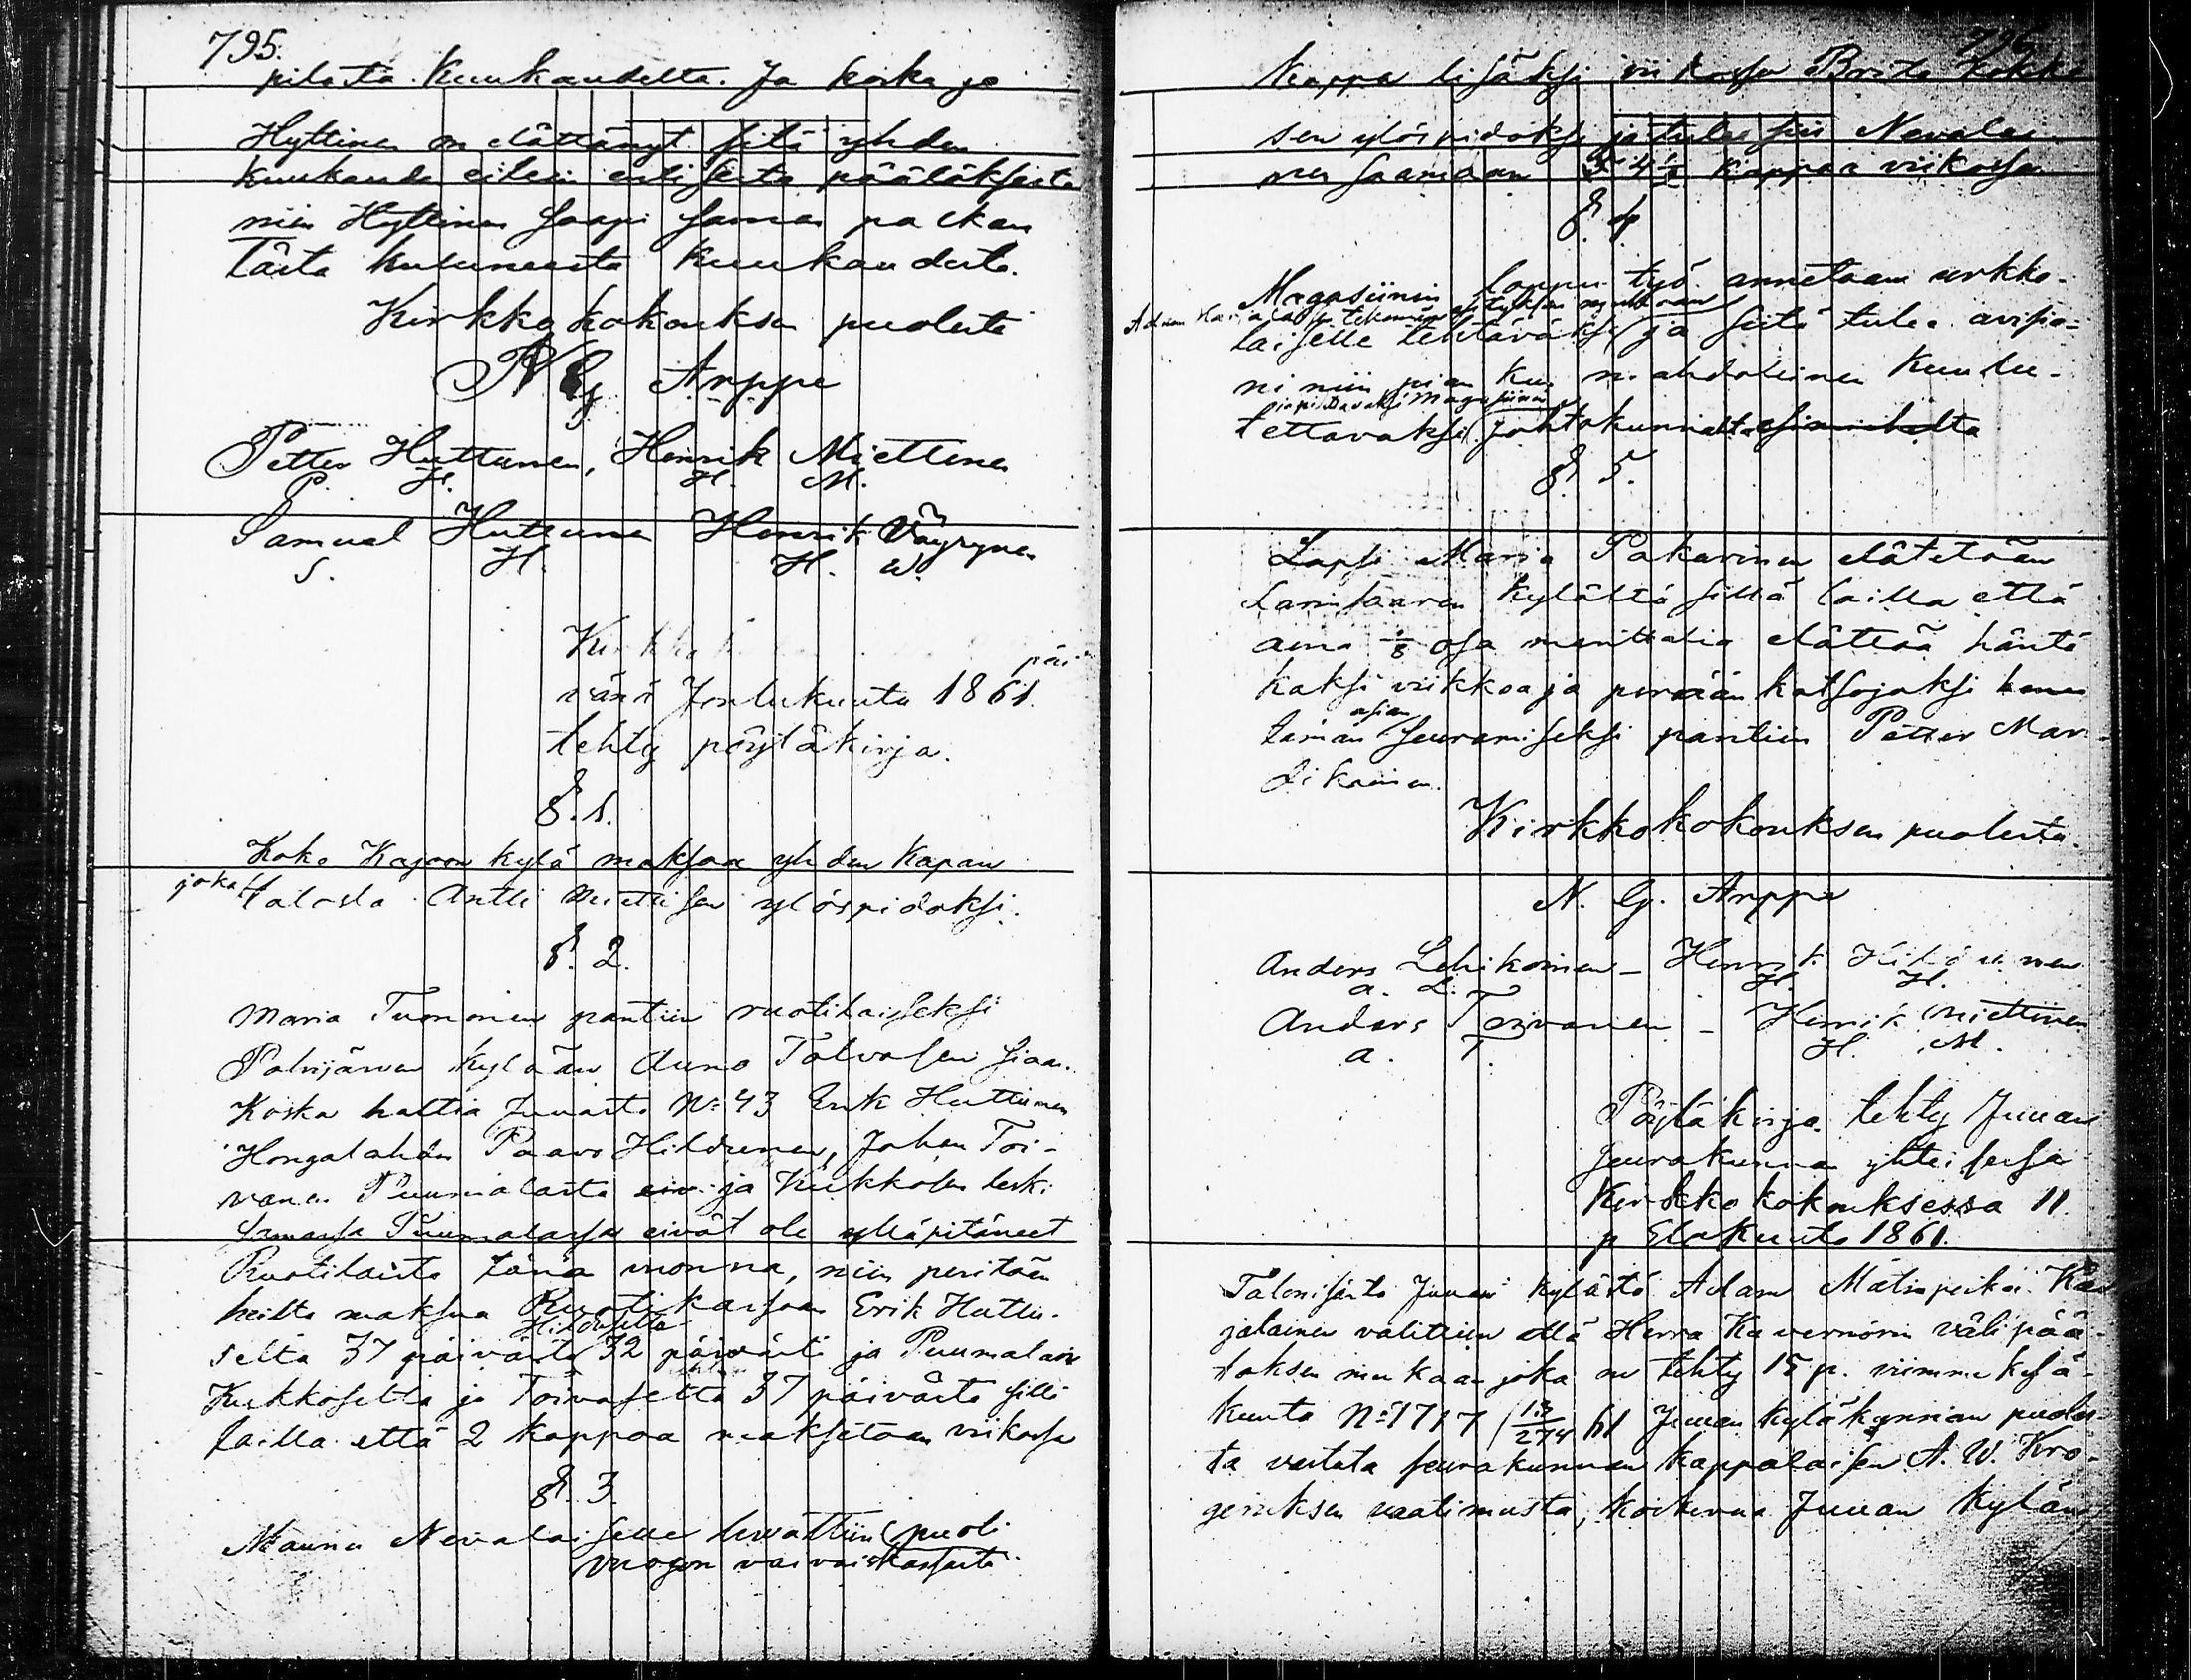 795.
pilasta kuukaudelta. Ja koska jo
Hyttinen on elättänyt sitä yhden
kuukauden eilein entisestä päätöksestä
niin Hyttinen saapi saman palkan
tästä kuluneesta kuukaudesta.
Kirkkokokouksen puolesta
N G Arppe
Petter Huttunen, Henrik Miettinen
P. H. H. M.
Samuel Huttunen Henrik Väyrynen
S. H. H. W.
Kirkko
päi
vänä Joulukuuta 1861.
tehty pöytäkirja.
§. 1.
Koko Kajoon kylä maksaa yhden kapan
joka talosta Antti Miettisen ylöspidoksi.
§. 2.
Maria Tuononen pantiin ruotilaiseksi
Polvijärven kylään Auno Tolvasen siaan.
Koska haltia Juuasta No 43 Erik Huttunen
Hongalahden Paavo Hildunen, Johan Toi-
vanen Puumalasta ja Kukkosen leski
samassa Puumalassa eivät ole ylläpitäneet
Ruotilaista tänä vuonna, niin peritään
heiltä maksua Ruotikassaan Erik Huttu-
Hilduselta
selta 37 päivästä 32 päivästä ja Puumalan
Kukkoselta ja Toivaselta 37 päivästä sillä
lailla että 2 kappaa maksetaan viikossa
§. 3.
Maunu Nevalaiselle lisvättiin puoli
vuogon vaivaiskassasta
795
Kappa lisäksi viikossa Brita Kokko
sen ylöspidoksi ja tulee siis Nevalai
nen saamaan 4 1/2 kappaa viikossa
§. 4.
Magasiinin loppu työ annetaan urkko-
laiselle tehtäväksi ja siitä tulee avisio-
ni niin pian kun mahdolinen kuulu-
tettavaksi johtokunnalta
§. 5.
Lapsi Maria Pakarinen elätetään
Larinsaaren kylältä sillä lailla että
aina 1/8 osa manttalia elättää häntä
kaksi viikkoa ja perään katsojaksi
asian
tämän seuramiseksi pantiin Petter Mar-
dikainen.
Kirkkokokouksen puolesta.
N. G. Arppe
Anders Lehikoinen - Henrik Hildunen
A. L. H. H.
Anders Tervonen - Henrik Miettinen
A. T. H. M.
Pöytäkirja tehty Juuan
seurakunnan yhteisessä
Kirkko kokouksessa 11
p Elokuuta 1861.
Talonisäntä Juuan kylästä Adam Matinpoika Kar
jalainen valittiin että Herra Kuvernörin välipää-
töksen mukaan joka on tehty 15 p. viimme kesä-
kuuta No 1717 (13/274 61 Juuan kyläkunnan puoles-
ta vastata seurakunnan kappalaisen A. W. Kro-
geruksen vaatimusta, koskeva Juuan kylän